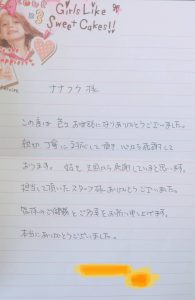 Girls Like
Sweet Cakes!!
ナナフク 様
この度は 色々お世話になりありがとうございました。
親切 丁寧に 対応して頂き 心から感謝して
おります。 姑も 天国から感謝していると思います。
担当して頂いたスタッフ様 ありがとうございました。
皆様のご健勝と ご多幸をお祈り申し上げます。
本当にありがとうございました。